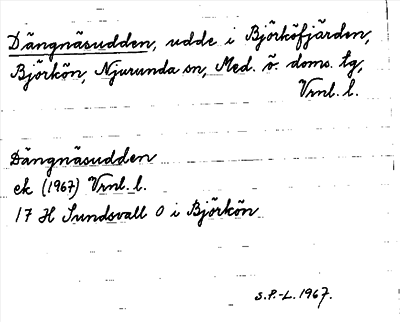 Dängnäsudden, udde i Björköfjärden,
Björkön, Njurunda sn, Med. ö. doms. tg,
Vrnl. l.
Dängnäsudden
ek (1967) Vrnl. l.
17 H Sundsvall O i Björkön
S.P.-L. 1967.